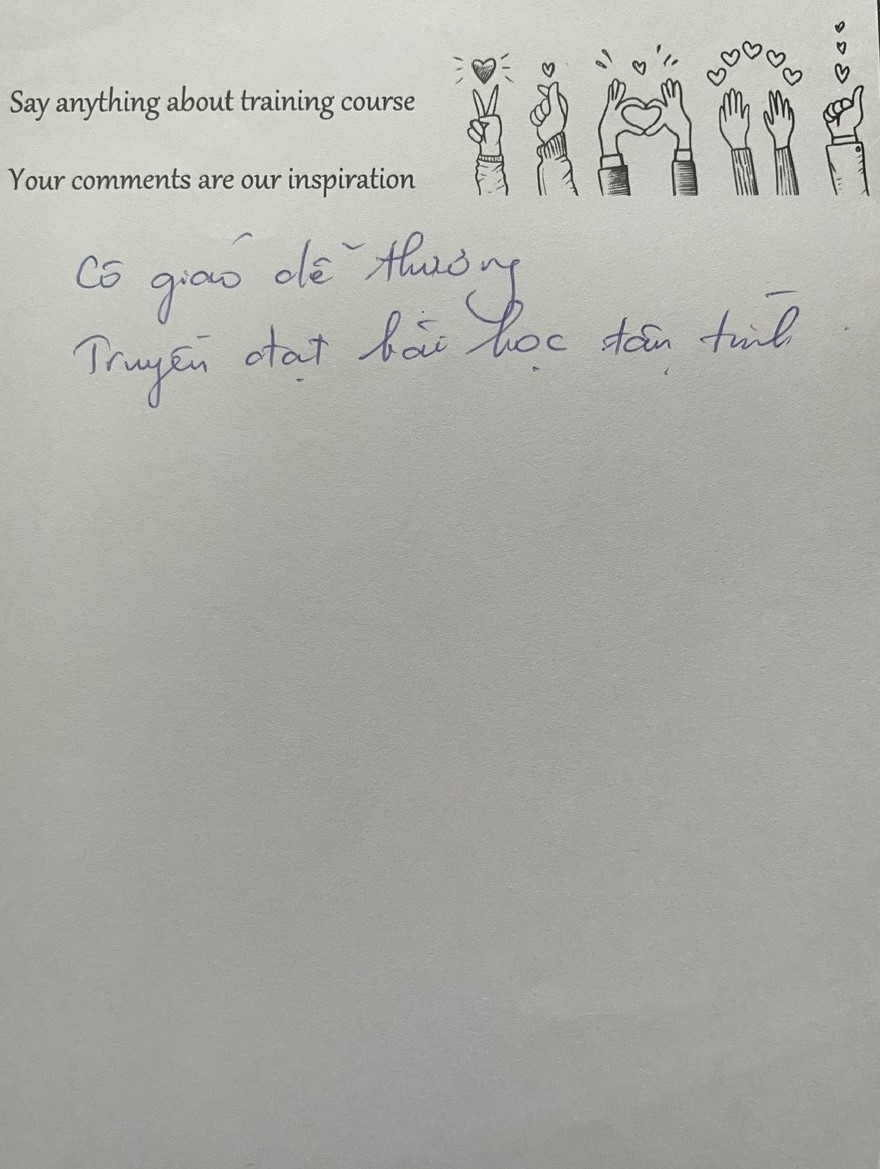 Say anything about training course
Your comments are our inspiration
Cô giáo dễ thương
Truyền đạt bài học tận tình